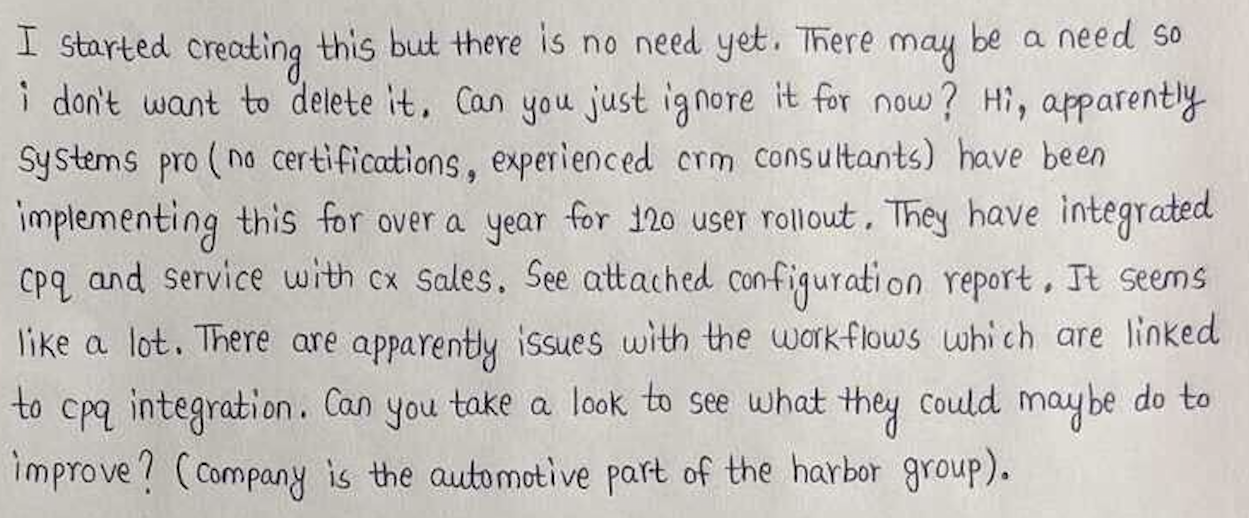 I started creating this but there is no need yet. There may be a need so
i don't want to delete it. Can you just ignore it for now? Hi, apparently
systems pro (no certifications, experienced crm consultants) have been
implementing this for over a year for 120 user rollout. They have integrated
cpq and service with cx sales. See attached configuration report. It seems
like a lot. There are apparently issues with the workflows which are linked
to cpq integration. Can you take a look to see what they could maybe do to
improve? (Company is the automotive part of the harbor group).